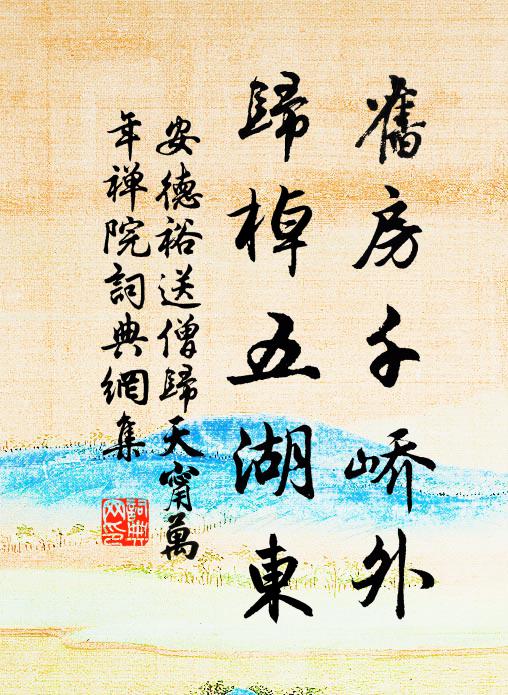 舊房千嶠外
歸棹五湖東
安德裕送僧歸天甯萬
年禅院詞典網集